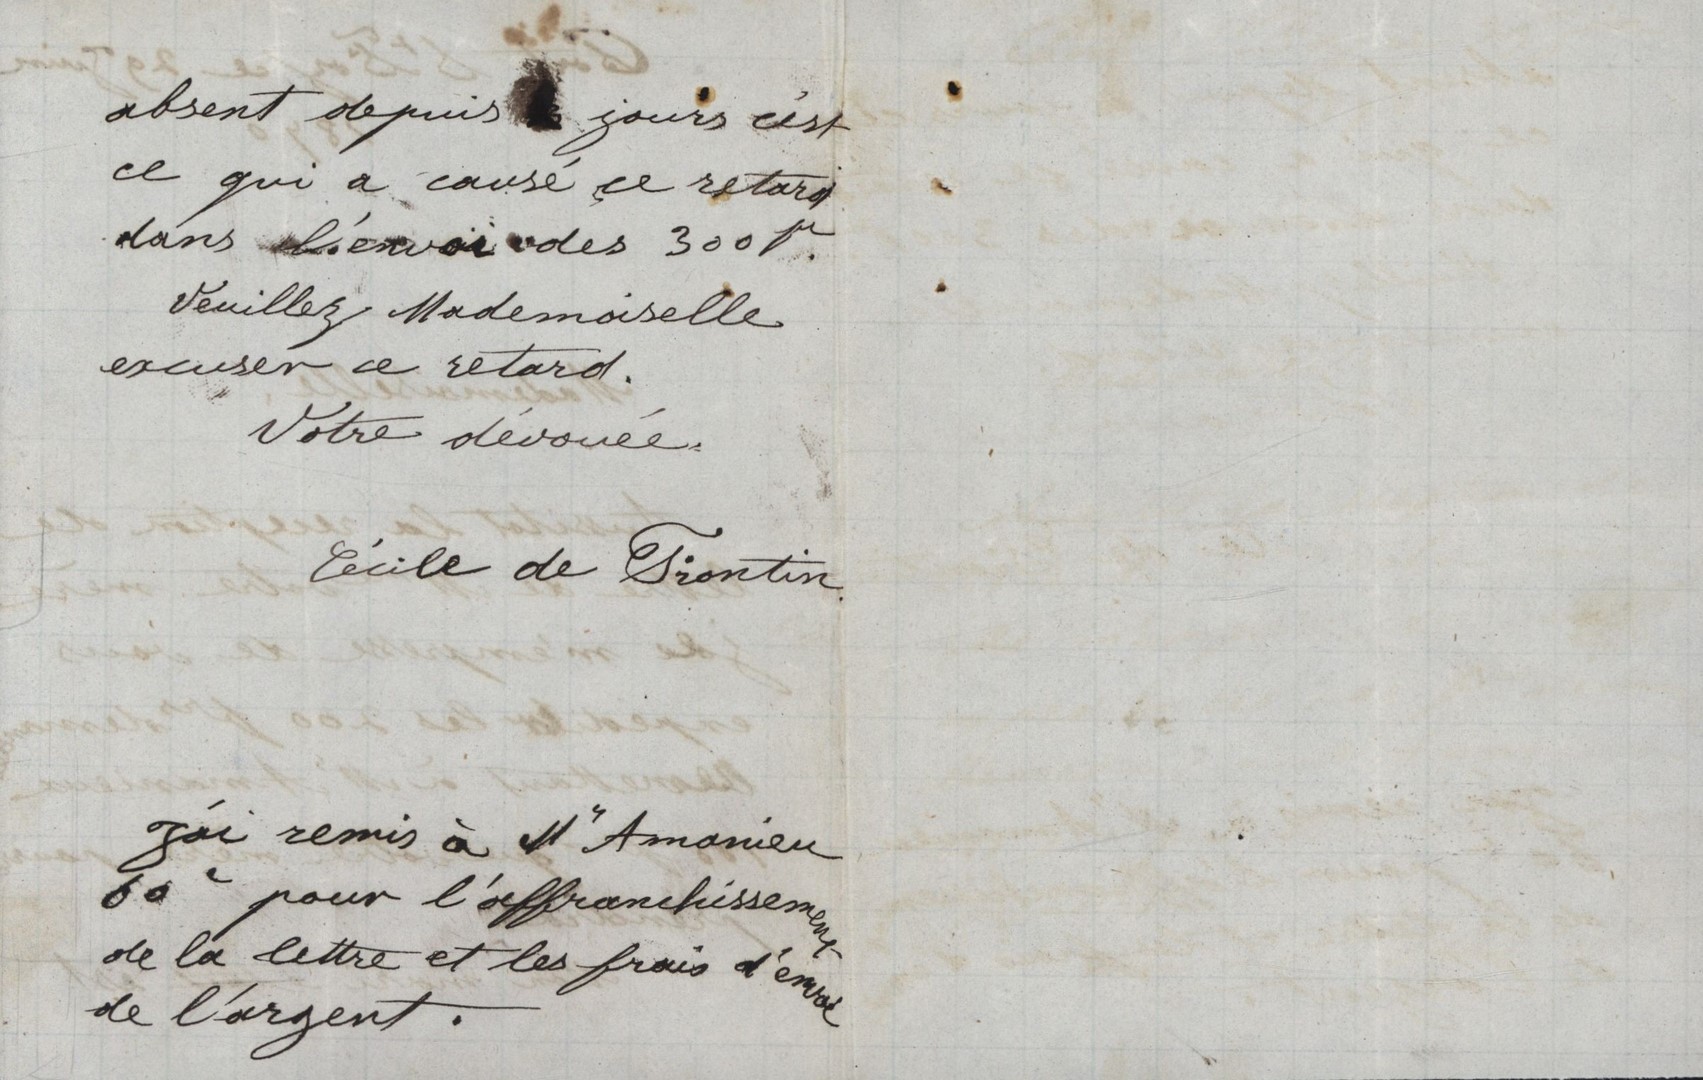 absent depuis jours c'est
ce qui a causé ce retard
dans l'envoi des 300 fr.
Veuillez Mademoiselle
excuser ce retard.
Votre dévouée.
Cécile de Frontin.
J'ai remis à Mr Amanieu
60c pour l'affranchissement
de la lettre et les frais d'envoi
de l'argent.